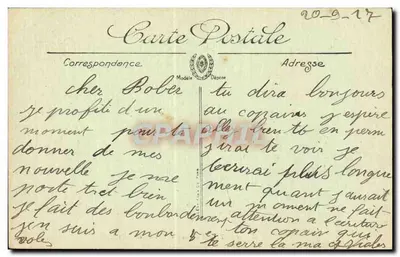 20-9-17
Carte Postale
Correspondance
Adresse
Modèle Déposé
cher Bober
je profite d'un
moment pour te
donner de mes
nouvelle je me
porte tret bien
je fait des bonbardement
jen suis a mon 5
tu dira bonjours
au copains j'espere
alle bientô en perm
j'irai te voir je
tecrirai plus longue
ment quant j'aurait
un moment ne fait
attention a l'ecriture
ton copain qui
te serre la ma